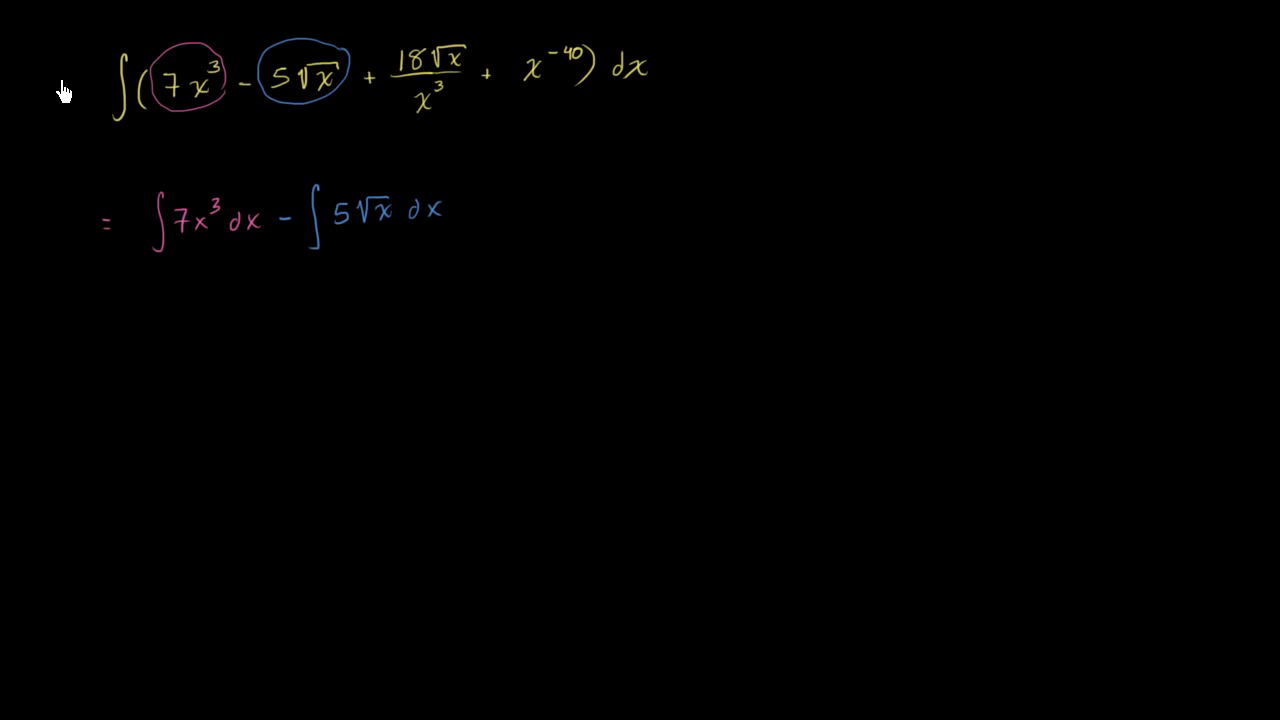 ∫(7x³ - 5√x + 18√x/x³ + x⁻⁴⁰) dx
= ∫7x³ dx - ∫5√x dx